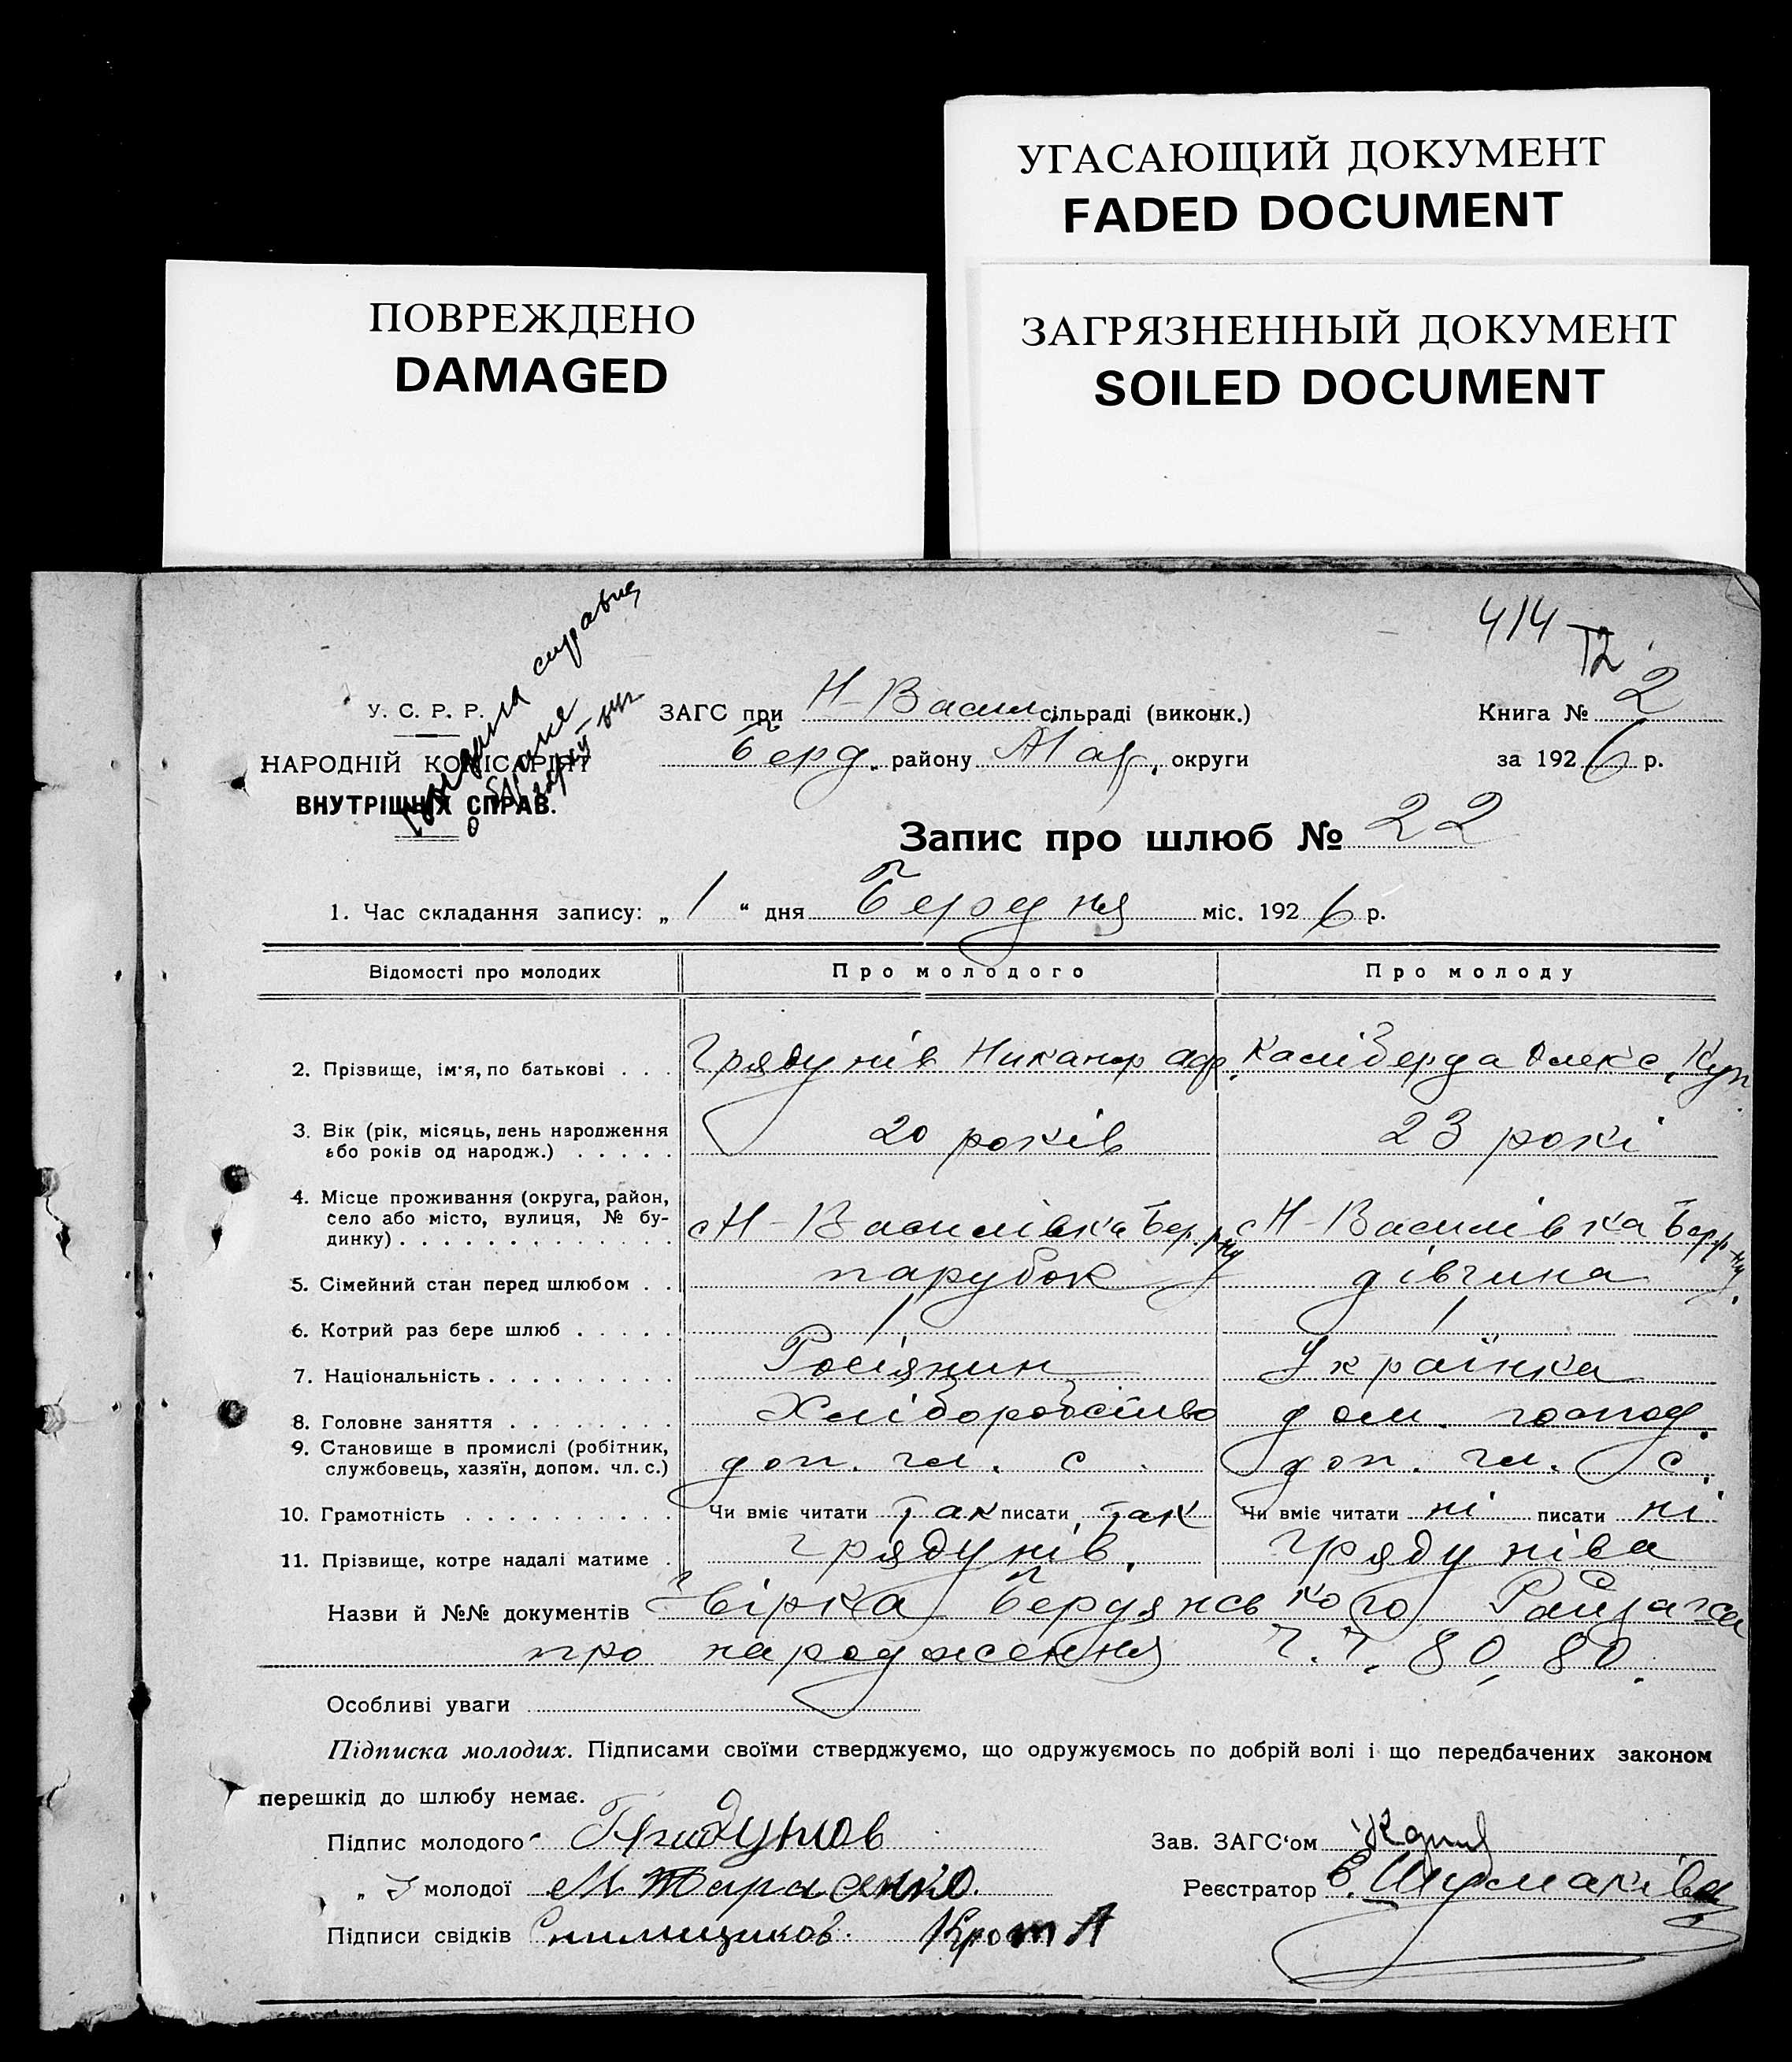 УГАСАЮЩИЙ ДОКУМЕНТ
FADED DOCUMENT
ПОВРЕЖДЕНО
DAMAGED
ЗАГРЯЗНЕННЫЙ ДОКУМЕНТ
SOILED DOCUMENT
414
12
справка
У. С. Р. Р.
НАРОДНІЙ КОМІСАРІЯТ
ВНУТРІШНІХ СПРАВ.
ЗАГС при Н-Васил сільраді (виконк.)
Берд. району Мар. округи
Книга № 2
за 1926 р.
Запис про шлюб № 22
1. Час складання запису: „ 1 “ дня Березня міс. 1926 р.
Відомості про молодих Про молодого Про молоду
2. Прізвище, ім'я, по батькові . . . Грядунів Никанор Аф. Каліберда Олекс. Куп
3. Вік (рік, місяць, день народження
або років од народж.) . . . . . 20 років 23 рокі
4. Місце проживання (округа, район,
село або місто, вулиця, № бу-
динку) . . . . . . . . . . . . . с Н-Василівка Бер. р-ну с Н-Василівка Бер. р-ну
5. Сімейний стан перед шлюбом . . парубок дівчина
6. Котрий раз бере шлюб . . . . . 1 1
7. Національність . . . . . . . . . Росіянин Українка
8. Головне заняття . . . . . . . . Хліборобство дом. господ.
9. Становище в промислі (робітник,
службовець, хазяїн, допом. чл. с.) доп. чл. с. доп. чл. с.
10. Грамотність . . . . . . . . . . Чи вміє читати так писати так Чи вміє читати ні писати ні
11. Прізвище, котре надалі матиме . Грядунів. Грядуніва
Назви й №№ документів Звірка Бердянського Райзагса
про народження Ч.Ч. 80, 80.
Особливі уваги
Підписка молодих. Підписами своїми стверджуємо, що одружуємось по добрій волі і що передбачених законом
перешкід до шлюбу немає.
Підпис молодого Гридунов Зав. ЗАГС'ом
„ молодої М Тарасенко. Реєстратор Е. Шумаківа
Підписи свідків Крот А